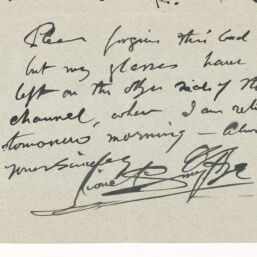 Please forgive this bad
but my glasses have
left on the other side of the
channel, where I am
tomorrow morning —
yours sincerely
Lionel